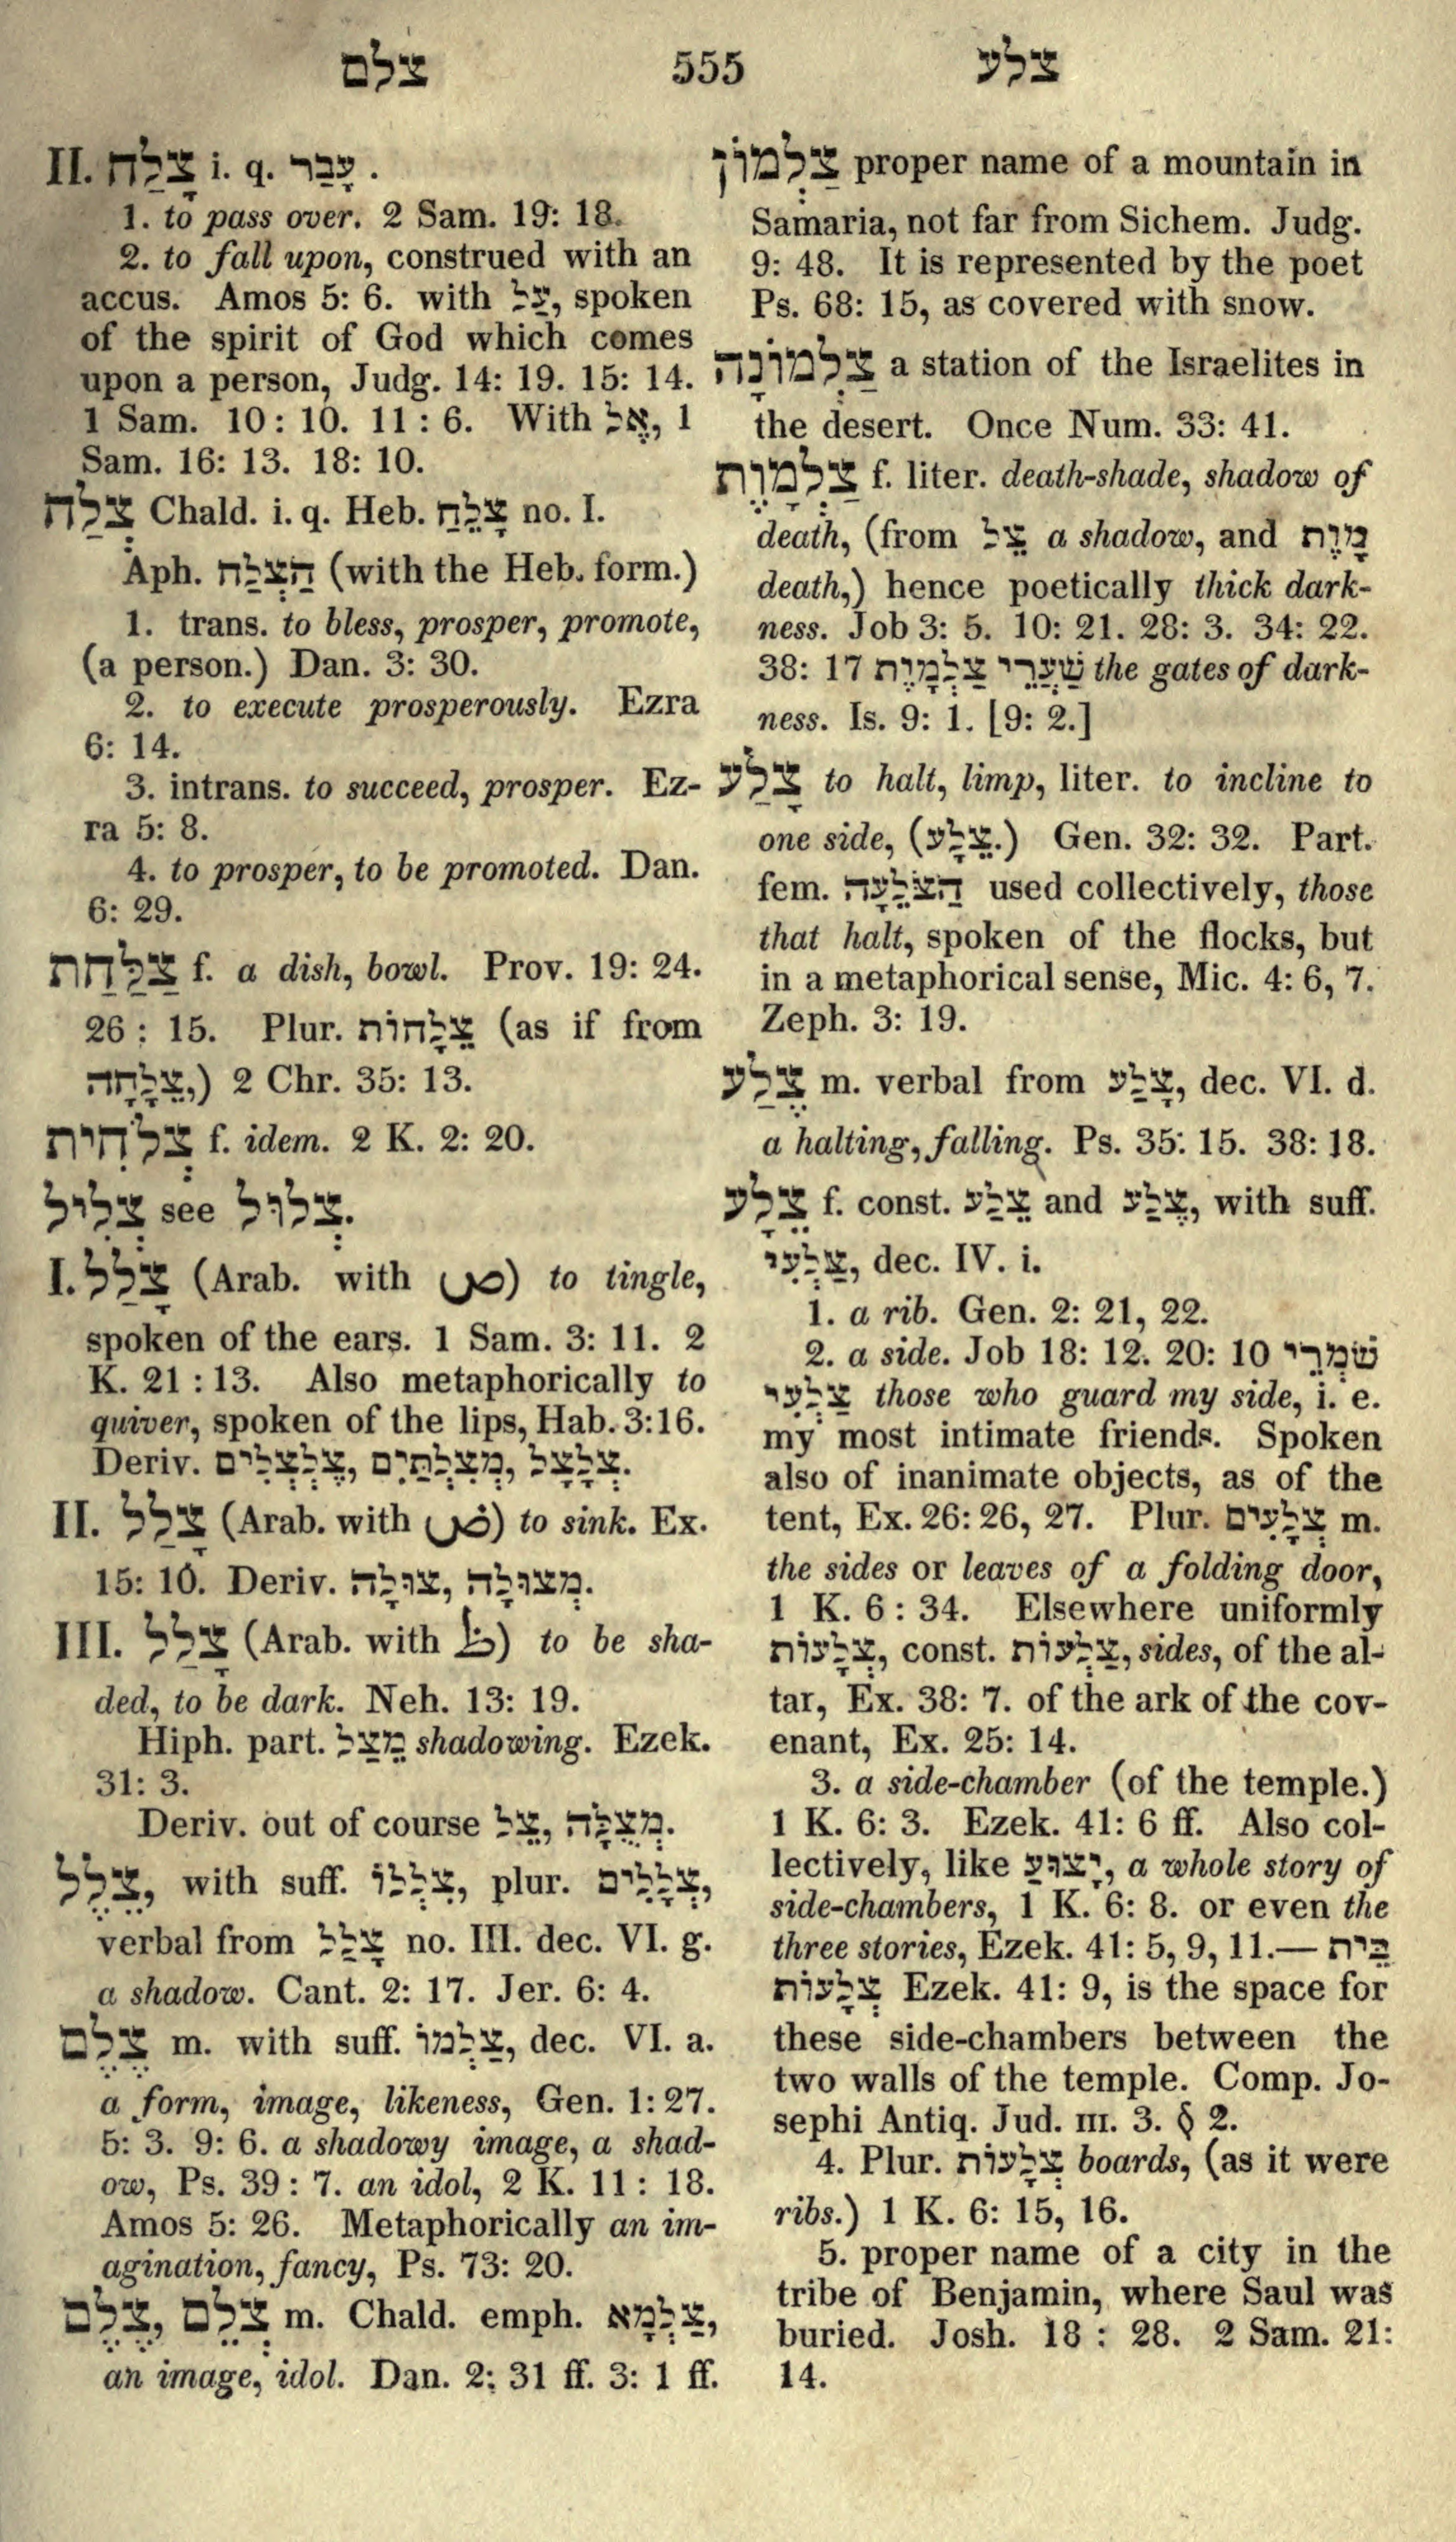 צלם 555 צלע
II. צָלַח i. q. עָבַר .
1. to pass over. 2 Sam. 19: 18.
2. to fall upon, construed with an
accus. Amos 5: 6. with עַל, spoken
of the spirit of God which comes
upon a person, Judg. 14: 19. 15: 14.
1 Sam. 10 : 10. 11 : 6. With אֶל, 1
Sam. 16: 13. 18: 10.
צְלַח Chald. i. q. Heb. צָלֵחַ no. I.
Aph. הַצְלַח (with the Heb. form.)
1. trans. to bless, prosper, promote,
(a person.) Dan. 3: 30.
2. to execute prosperously. Ezra
6: 14.
3. intrans. to succeed, prosper. Ez-
ra 5: 8.
4. to prosper, to be promoted. Dan.
6: 29.
צַלַּחַת f. a dish, bowl. Prov. 19: 24.
26 : 15. Plur. צֵלָחוֹת (as if from
צֵלָחָה,) 2 Chr. 35: 13.
צְלֹחִית f. idem. 2 K. 2: 20.
צְלִיל see צְלוּל.
I. צָלַל (Arab. with ص) to tingle,
spoken of the ears. 1 Sam. 3: 11. 2
K. 21 : 13. Also metaphorically to
quiver, spoken of the lips, Hab. 3:16.
Deriv. צֶלְצְלִים, מְצִלְתַּיִם, צְלָצָל.
II. צָלַל (Arab. with ض) to sink. Ex.
15: 10. Deriv. צוּלָה, מְצוּלָה.
III. צָלַל (Arab. with ظ) to be sha-
ded, to be dark. Neh. 13: 19.
Hiph. part. מֵצַל shadowing. Ezek.
31: 3.
Deriv. out of course צֵל, מְצֻלָּה.
צֵלֶל, with suff. צִלְלוֹ, plur. צְלָלִים,
verbal from צָלַל no. III. dec. VI. g.
a shadow. Cant. 2: 17. Jer. 6: 4.
צֶלֶם m. with suff. צַלְמוֹ, dec. VI. a.
a form, image, likeness, Gen. 1: 27.
5: 3. 9: 6. a shadowy image, a shad-
ow, Ps. 39 : 7. an idol, 2 K. 11 : 18.
Amos 5: 26. Metaphorically an im-
agination, fancy, Ps. 73: 20.
צֶלֶם, צְלֵם m. Chald. emph. צַלְמָא,
an image, idol. Dan. 2: 31 ff. 3: 1 ff.
צַלְמוֹן proper name of a mountain in
Samaria, not far from Sichem. Judg.
9: 48. It is represented by the poet
Ps. 68: 15, as covered with snow.
צַלְמוֹנָה a station of the Israelites in
the desert. Once Num. 33: 41.
צַלְמָוֶת f. liter. death-shade, shadow of
death, (from צֵל a shadow, and מָוֶת
death,) hence poetically thick dark-
ness. Job 3: 5. 10: 21. 28: 3. 34: 22.
38: 17 שַׁעֲרֵי צַלְמָוֶת the gates of dark-
ness. Is. 9: 1. [9: 2.]
צָלַע to halt, limp, liter. to incline to
one side, (צֵלָע.) Gen. 32: 32. Part.
fem. הַצֹּלֵעָה used collectively, those
that halt, spoken of the flocks, but
in a metaphorical sense, Mic. 4: 6, 7.
Zeph. 3: 19.
צֶלַע m. verbal from צָלַע, dec. VI. d.
a halting, falling. Ps. 35: 15. 38: 18.
צֵלָע f. const. צֵלַע and צֶלַע, with suff.
צַלְעִי, dec. IV. i.
1. a rib. Gen. 2: 21, 22.
2. a side. Job 18: 12. 20: 10 שֹׁמְרֵי
צַלְעִי those who guard my side, i. e.
my most intimate friends. Spoken
also of inanimate objects, as of the
tent, Ex. 26: 26, 27. Plur. צְלָעִים m.
the sides or leaves of a folding door,
1 K. 6 : 34. Elsewhere uniformly
צְלָעוֹת, const. צַלְעוֹת, sides, of the al-
tar, Ex. 38: 7. of the ark of the cov-
enant, Ex. 25: 14.
3. a side-chamber (of the temple.)
1 K. 6: 3. Ezek. 41: 6 ff. Also col-
lectively, like יָצוּעַ, a whole story of
side-chambers, 1 K. 6: 8. or even the
three stories, Ezek. 41: 5, 9, 11.— בֵּית
צְלָעוֹת Ezek. 41: 9, is the space for
these side-chambers between the
two walls of the temple. Comp. Jo-
sephi Antiq. Jud. III. 3. § 2.
4. Plur. צְלָעוֹת boards, (as it were
ribs.) 1 K. 6: 15, 16.
5. proper name of a city in the
tribe of Benjamin, where Saul was
buried. Josh. 18 : 28. 2 Sam. 21:
14.